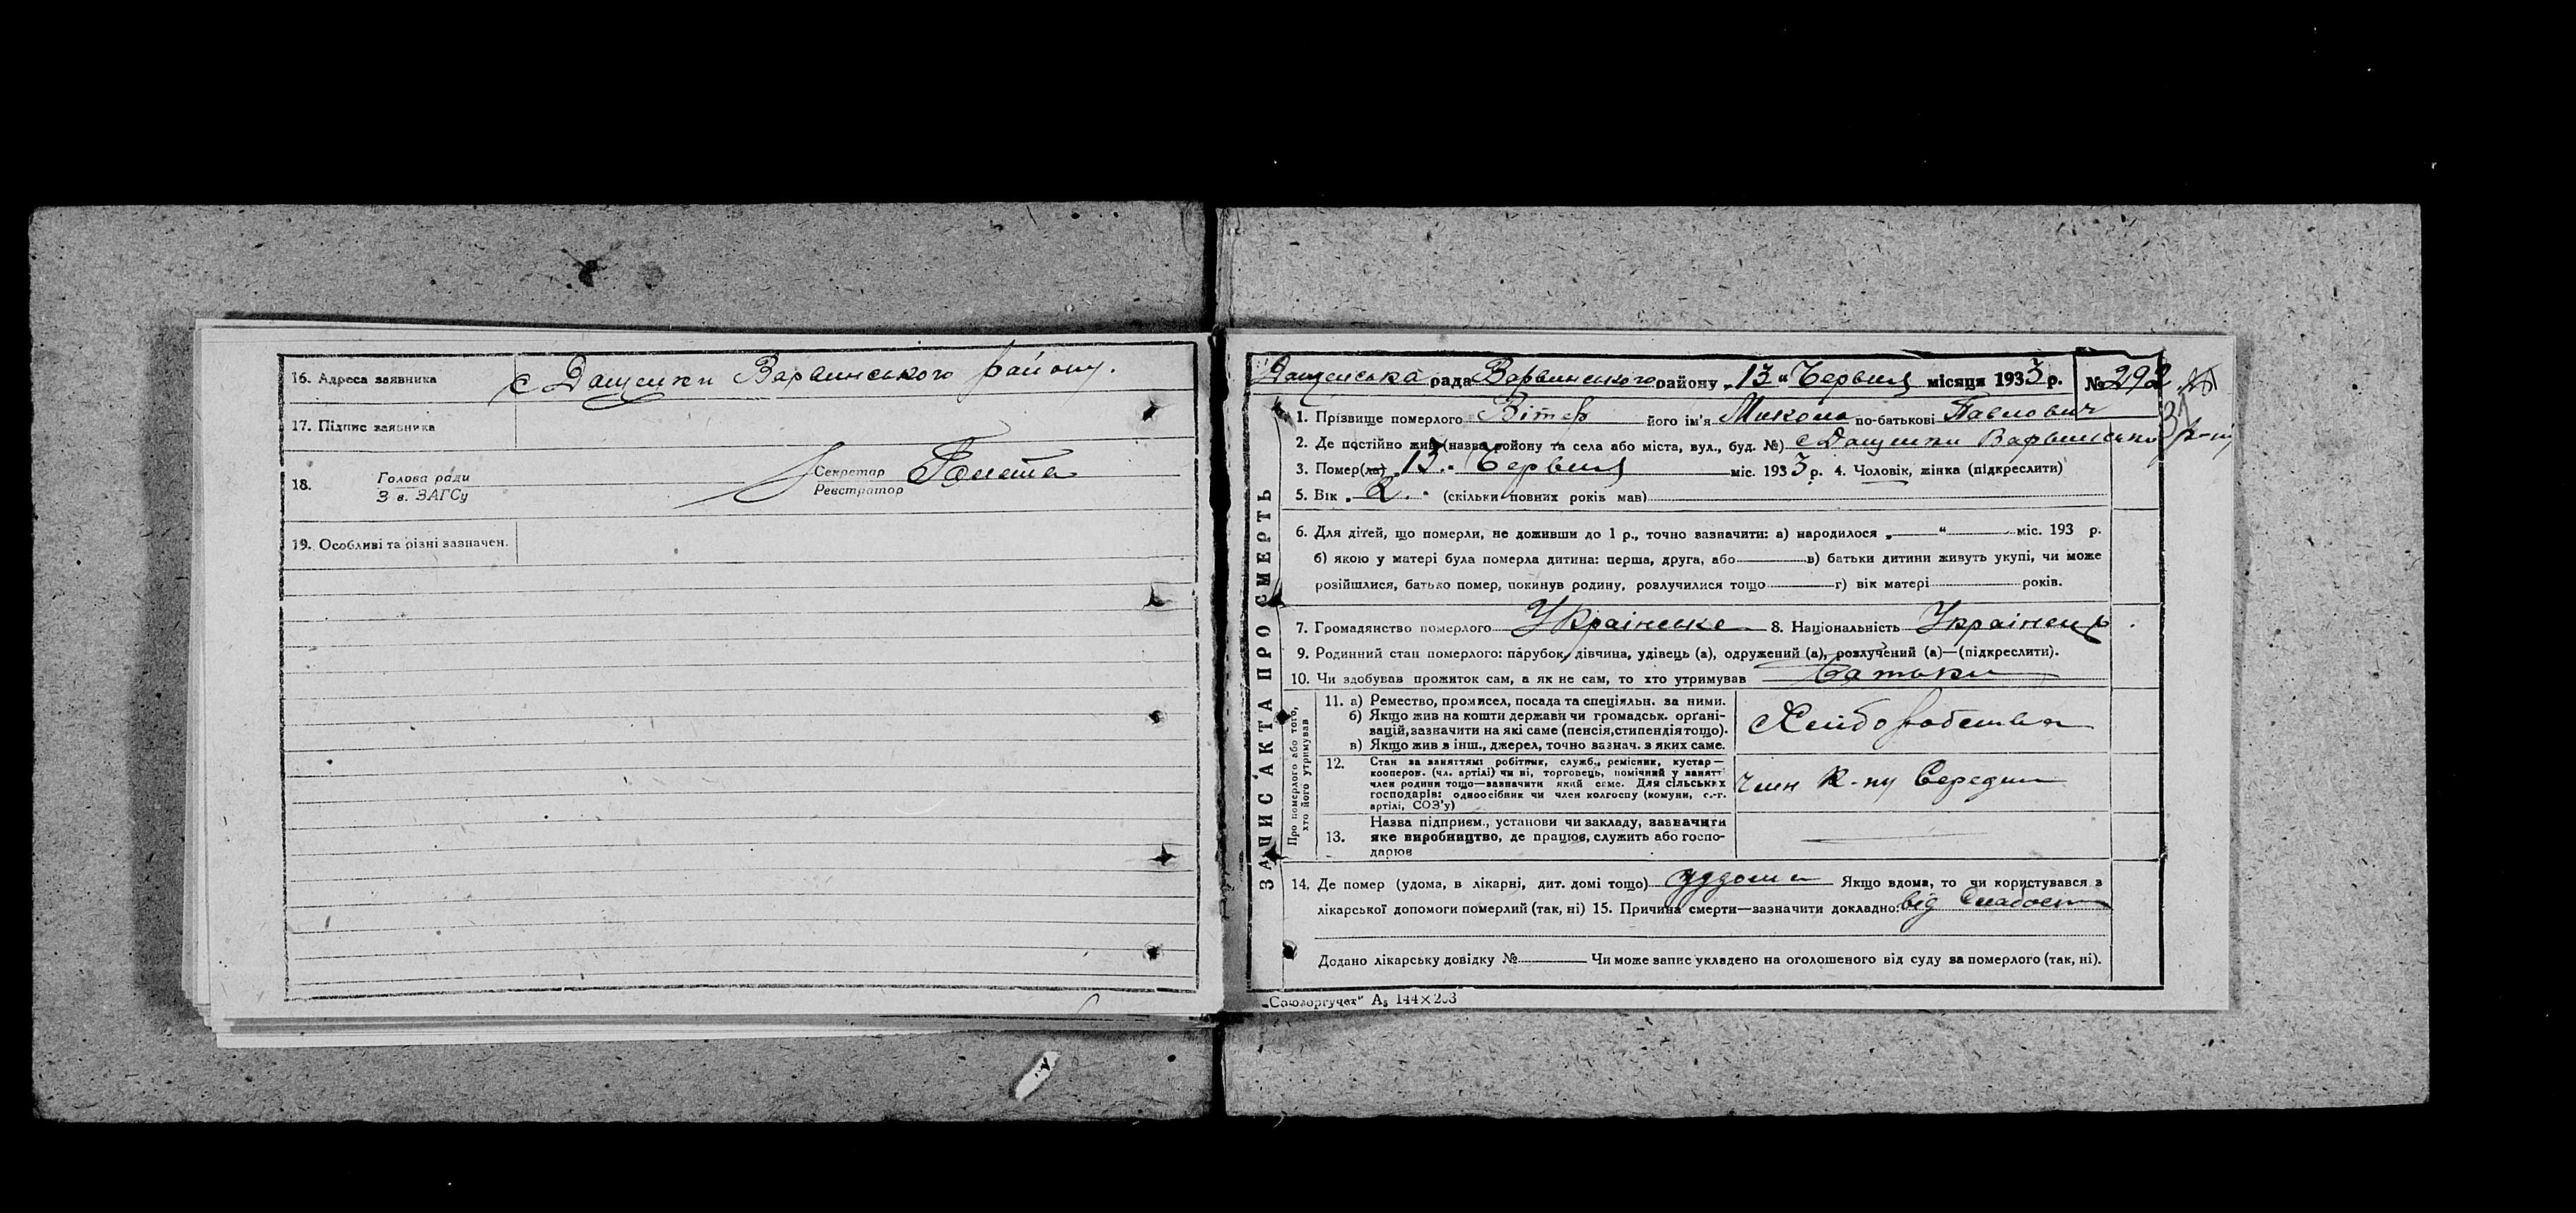 16. Адреса заявника с Дащенки Варвинського району.
17. Підпис заявника
18. Голова ради
З в. ЗАГСу
Секретар
Реєстратор
19. Особливі та різні зазначен.
ЗАПИС АКТА ПРО СМЕРТЬ
Дащенська рада Варвинського району „13“ Червня місяця 1933 р. №292
31
1. Прізвище померлого Вітер його ім'я Микола по-батькові Павлович
2. Де постійно жив (назва району та села або міста, вул., буд. №) с Дащенки Варвинськи р-ну
3. Помер(ла) „13„ Червня міс. 1933 р. 4. Чоловік, жінка (підкреслити)
5. Вік „2.“ (скільки повних років мав)
6. Для дітей, що померли, не доживши до 1 р., точно зазначити: а) народилося „ “ міс. 193 р.
б) якою у матері була померла дитина: перша, друга, або в) батьки дитини живуть укупі, чи може
розійшлися, батько помер, покинув родину, розлучилися тощо г) вік матері років.
7. Громадянство померлого Украінське 8. Національність Украінець
9. Родинний стан померлого: парубок, дівчина, удівець (а), одружений (а), розлучений (а)—(підкреслити).
10. Чи здобував прожиток сам, а як не сам, то хто утримував батьки
Про померлого або того, хто його утримував
11. а) Ремество, промисел, посада та спеціяльн. за ними.
б) Якщо жив на кошти держави чи громадськ. органі-
зацій, зазначити на які саме (пенсія, стипендія тощо).
в) Якщо жив з інш., джерел, точно зазнач. з яких саме.
Хліборобство
12. Стан за заняттям: робітник, служб., ремісник, кустар—
кооперов. (чл. артілі) чи ні, торговець, помічний у занятті
член родини тощо—зазначити який саме. Для сільських
господарів: одноосібник чи член колгоспу (комуни, с.-г.
артілі, СОЗ'у)
член к-пу Середин
13. Назва підприєм., установи чи закладу, зазначити
яке виробництво, де працює, служить або госпо-
дарює
14. Де помер (удома, в лікарні, дит. домі тощо) удома Якщо вдома, то чи користувався з
лікарської допомоги померлий (так, ні) 15. Причина смерти—зазначити докладно: від слабости
Додано лікарську довідку № Чи може запис укладено на оголошеного від суду за померлого (так, ні).
„Союзоргучет“ А₅ 144×203